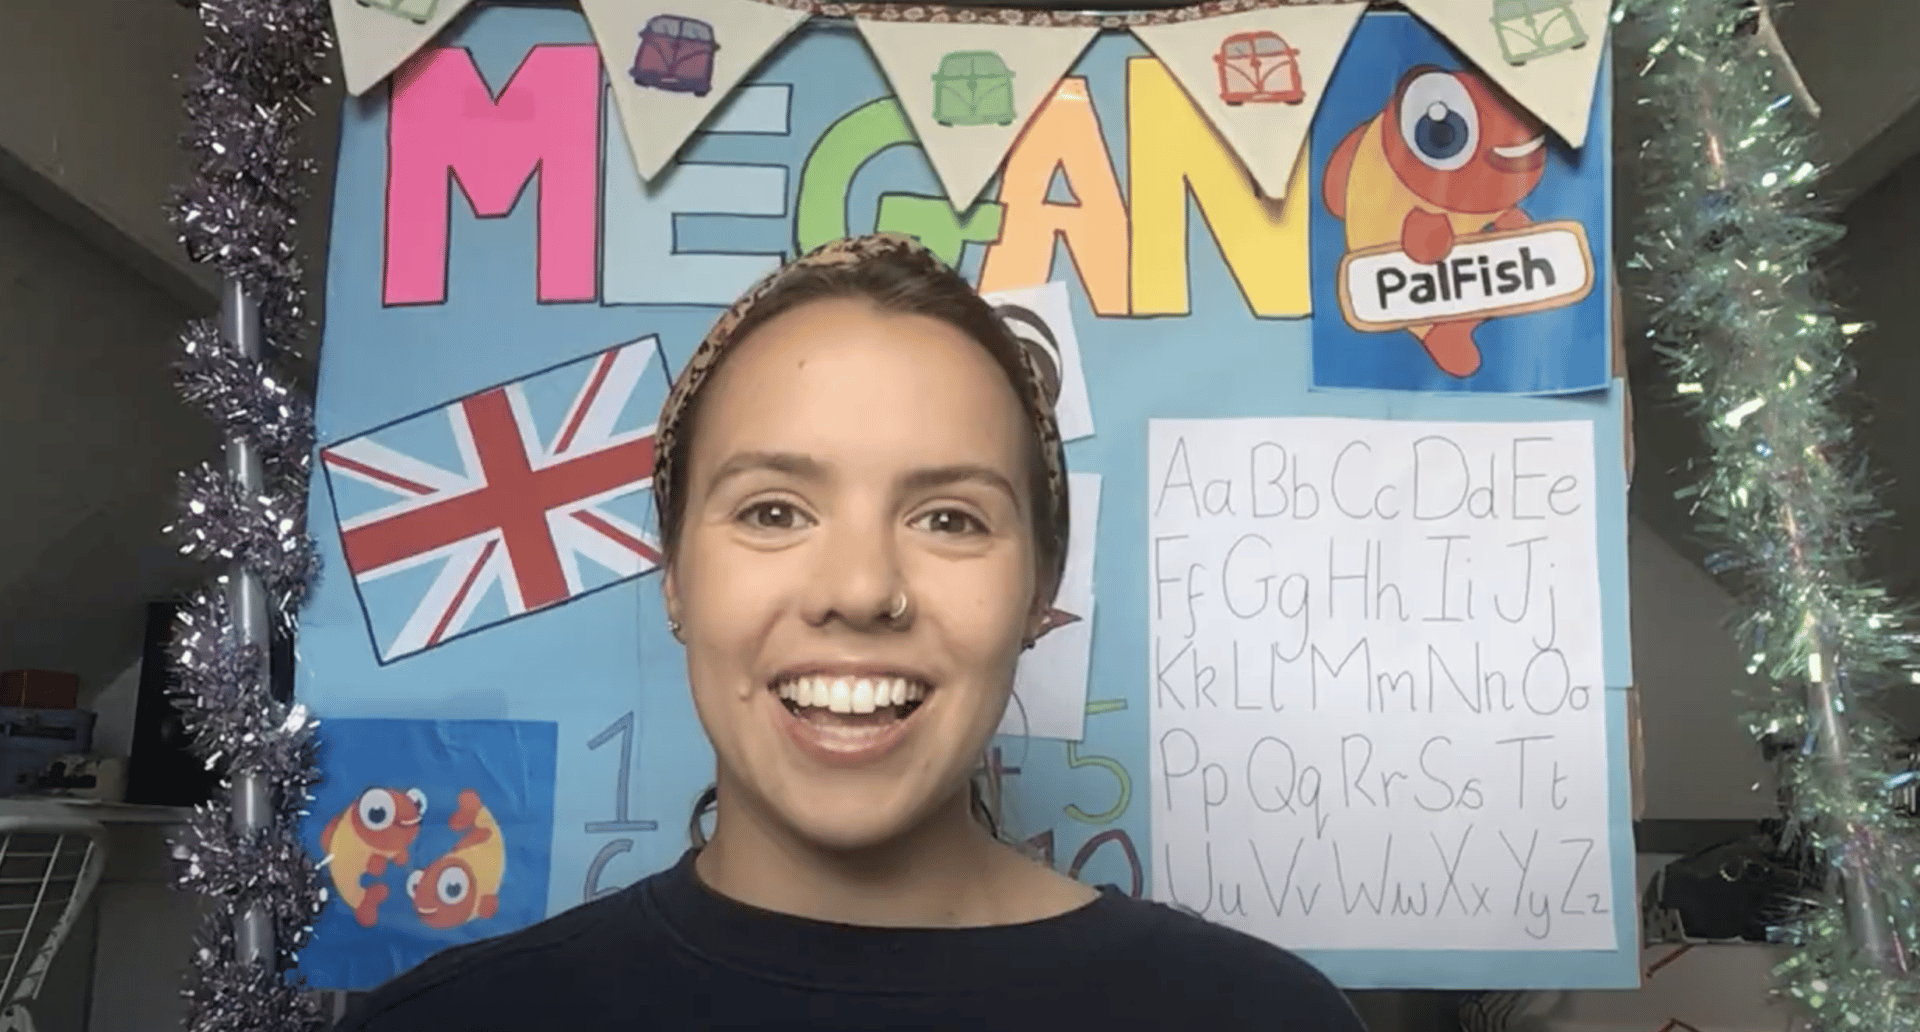 MEGAN
PalFish
Aa Bb Cc Dd Ee
Ff Gg Hh Ii Jj
Kk Ll Mm Nn Oo
Pp Qq Rr Ss Tt
Uu Vv Ww Xx Yy Zz
1
5
6
10